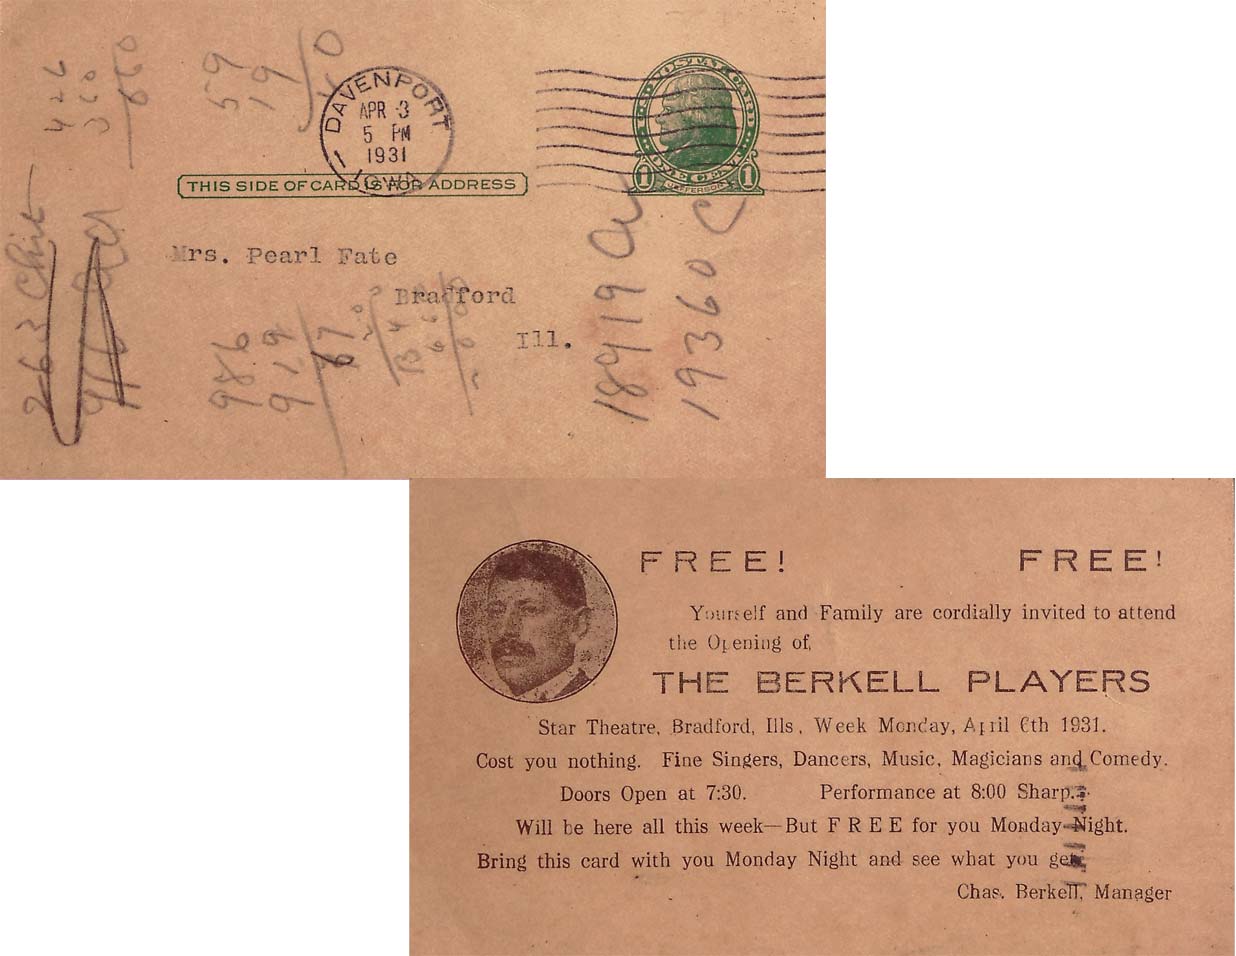 DAVENPORT
APR 3
5 PM
1931
IOWA
U·S·POSTAL CARD
ONE CENT
1 JEFFERSON 1
THIS SIDE OF CARD IS FOR ADDRESS
Mrs. Pearl Fate
Bradford
Ill.
59
19
660
263
986
919
67
18919
19360
FREE! FREE!
Yourself and Family are cordially invited to attend
the Opening of,
THE BERKELL PLAYERS
Star Theatre, Bradford, Ills, Week Monday, April 6th 1931.
Cost you nothing. Fine Singers, Dancers, Music, Magicians and Comedy.
Doors Open at 7:30. Performance at 8:00 Sharp.
Will be here all this week—But FREE for you Monday Night.
Bring this card with you Monday Night and see what you get.
Chas. Berkell, Manager